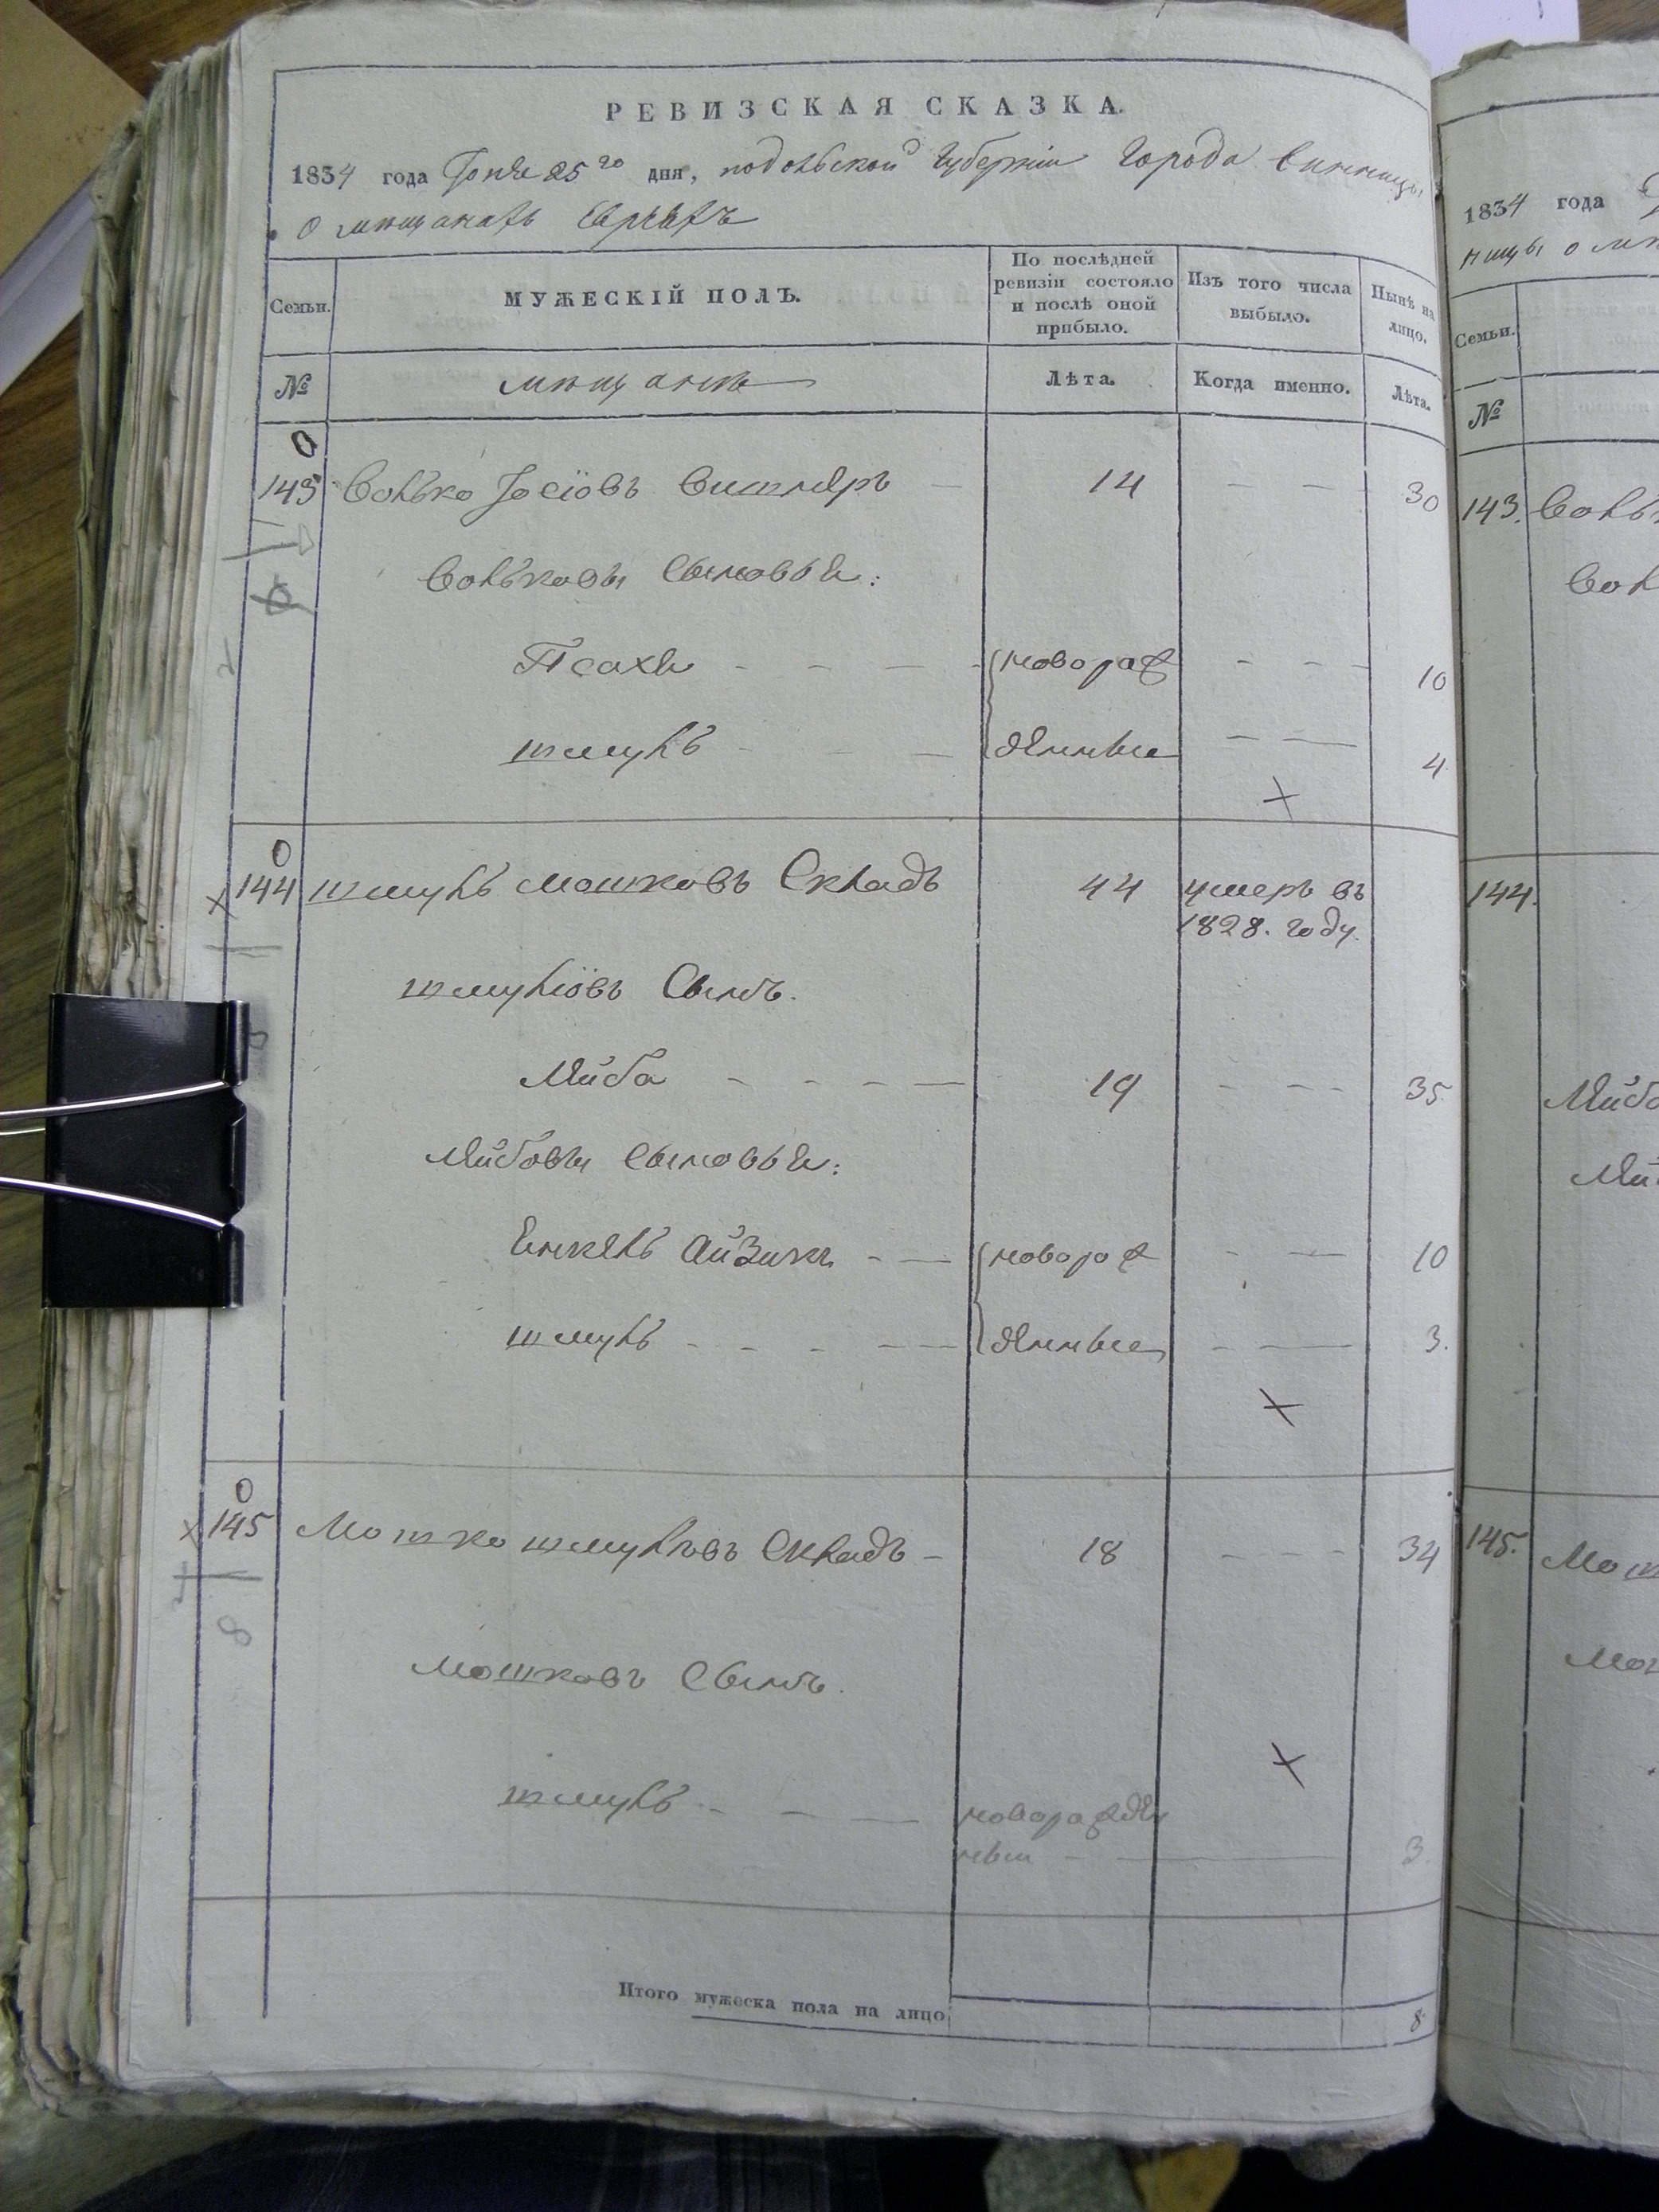 РЕВИЗСКАЯ СКАЗКА.
1834 года Іюня 25го дня, подольской Губерніи Города Винницы
о мѣщанахъ Евреяхъ
Семьи. МУЖЕСКІЙ ПОЛЪ. По послѣдней ревизіи состояло и послѣ оной прибыло. Изъ того числа выбыло. Нынѣ на лицо.
№ мѣщане Лѣта. Когда именно. Лѣта.
0
143 Волько Іосіовъ 14 — — 30
Вольковы Сыновья:
Псахя — — — новорож — — — 10
шмуль — — — денные — — 4
0
144 шмуль мошковъ Складъ 44 умеръ въ
1828. году.
шмуліовъ Сынъ.
Лейба — — — — 19 — — — 35.
Лейбовы Сыновья:
Енкель Айзикъ — — новорож — — 10
шмуль — — — — денные — — 3.
0
145 Мошко шмулевъ Складъ — 18 — — — 34
8
мошковъ Сынъ.
шмуль — — — новорожден
ный — — 3.
Итого мужеска пола на лицо 8
1834 года
ницы о мѣ
Семьи.
№
143. Воль
Вол
144.
Лейб
Лей
145. Мош
Мош